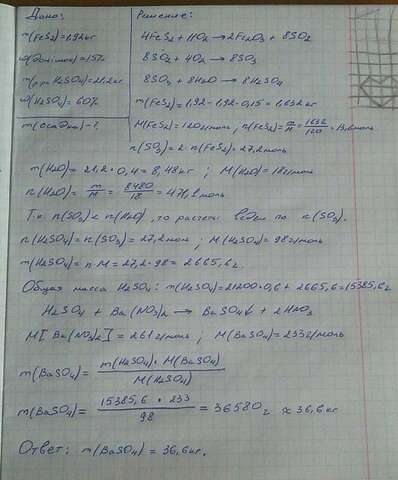 Дано:
m(FeS2)=1,92кг
m(р-ра H2SO4)=21,2кг
ω(H2SO4)=60%
m(осадка)-?
Решение:
4FeS2+11O2→2Fe2O3+8SO2
8SO2+4O2→8SO3
8SO3+8H2O→8H2SO4
m(FeS2)=1,92-1,92·0,15=1,632кг
M(FeS2)=120г/моль, n(FeS2)=m/M=1632/120=13,6моль
n(SO3)=2·n(FeS2)=27,2моль
m(H2O)=21,2·0,4=8,48кг; M(H2O)=18г/моль
n(H2O)=m/M=8480/18=471,1моль
Т.к. n(SO3)<n(H2O), то расчеты ведем по n(SO3).
n(H2SO4)=n(SO3)=27,2моль; M(H2SO4)=98г/моль
m(H2SO4)=n·M=27,2·98=2665,6г.
Общая масса H2SO4: m(H2SO4)=21200·0,6+2665,6=15385,6г
H2SO4+Ba(NO3)2→BaSO4↓+2HNO3
M[Ba(NO3)2]=261г/моль; M(BaSO4)=233г/моль
m(BaSO4)=m(H2SO4)·M(BaSO4)/M(H2SO4)
m(BaSO4)=15385,6·233/98=36580г≈36,6кг
Ответ: m(BaSO4)=36,6кг.